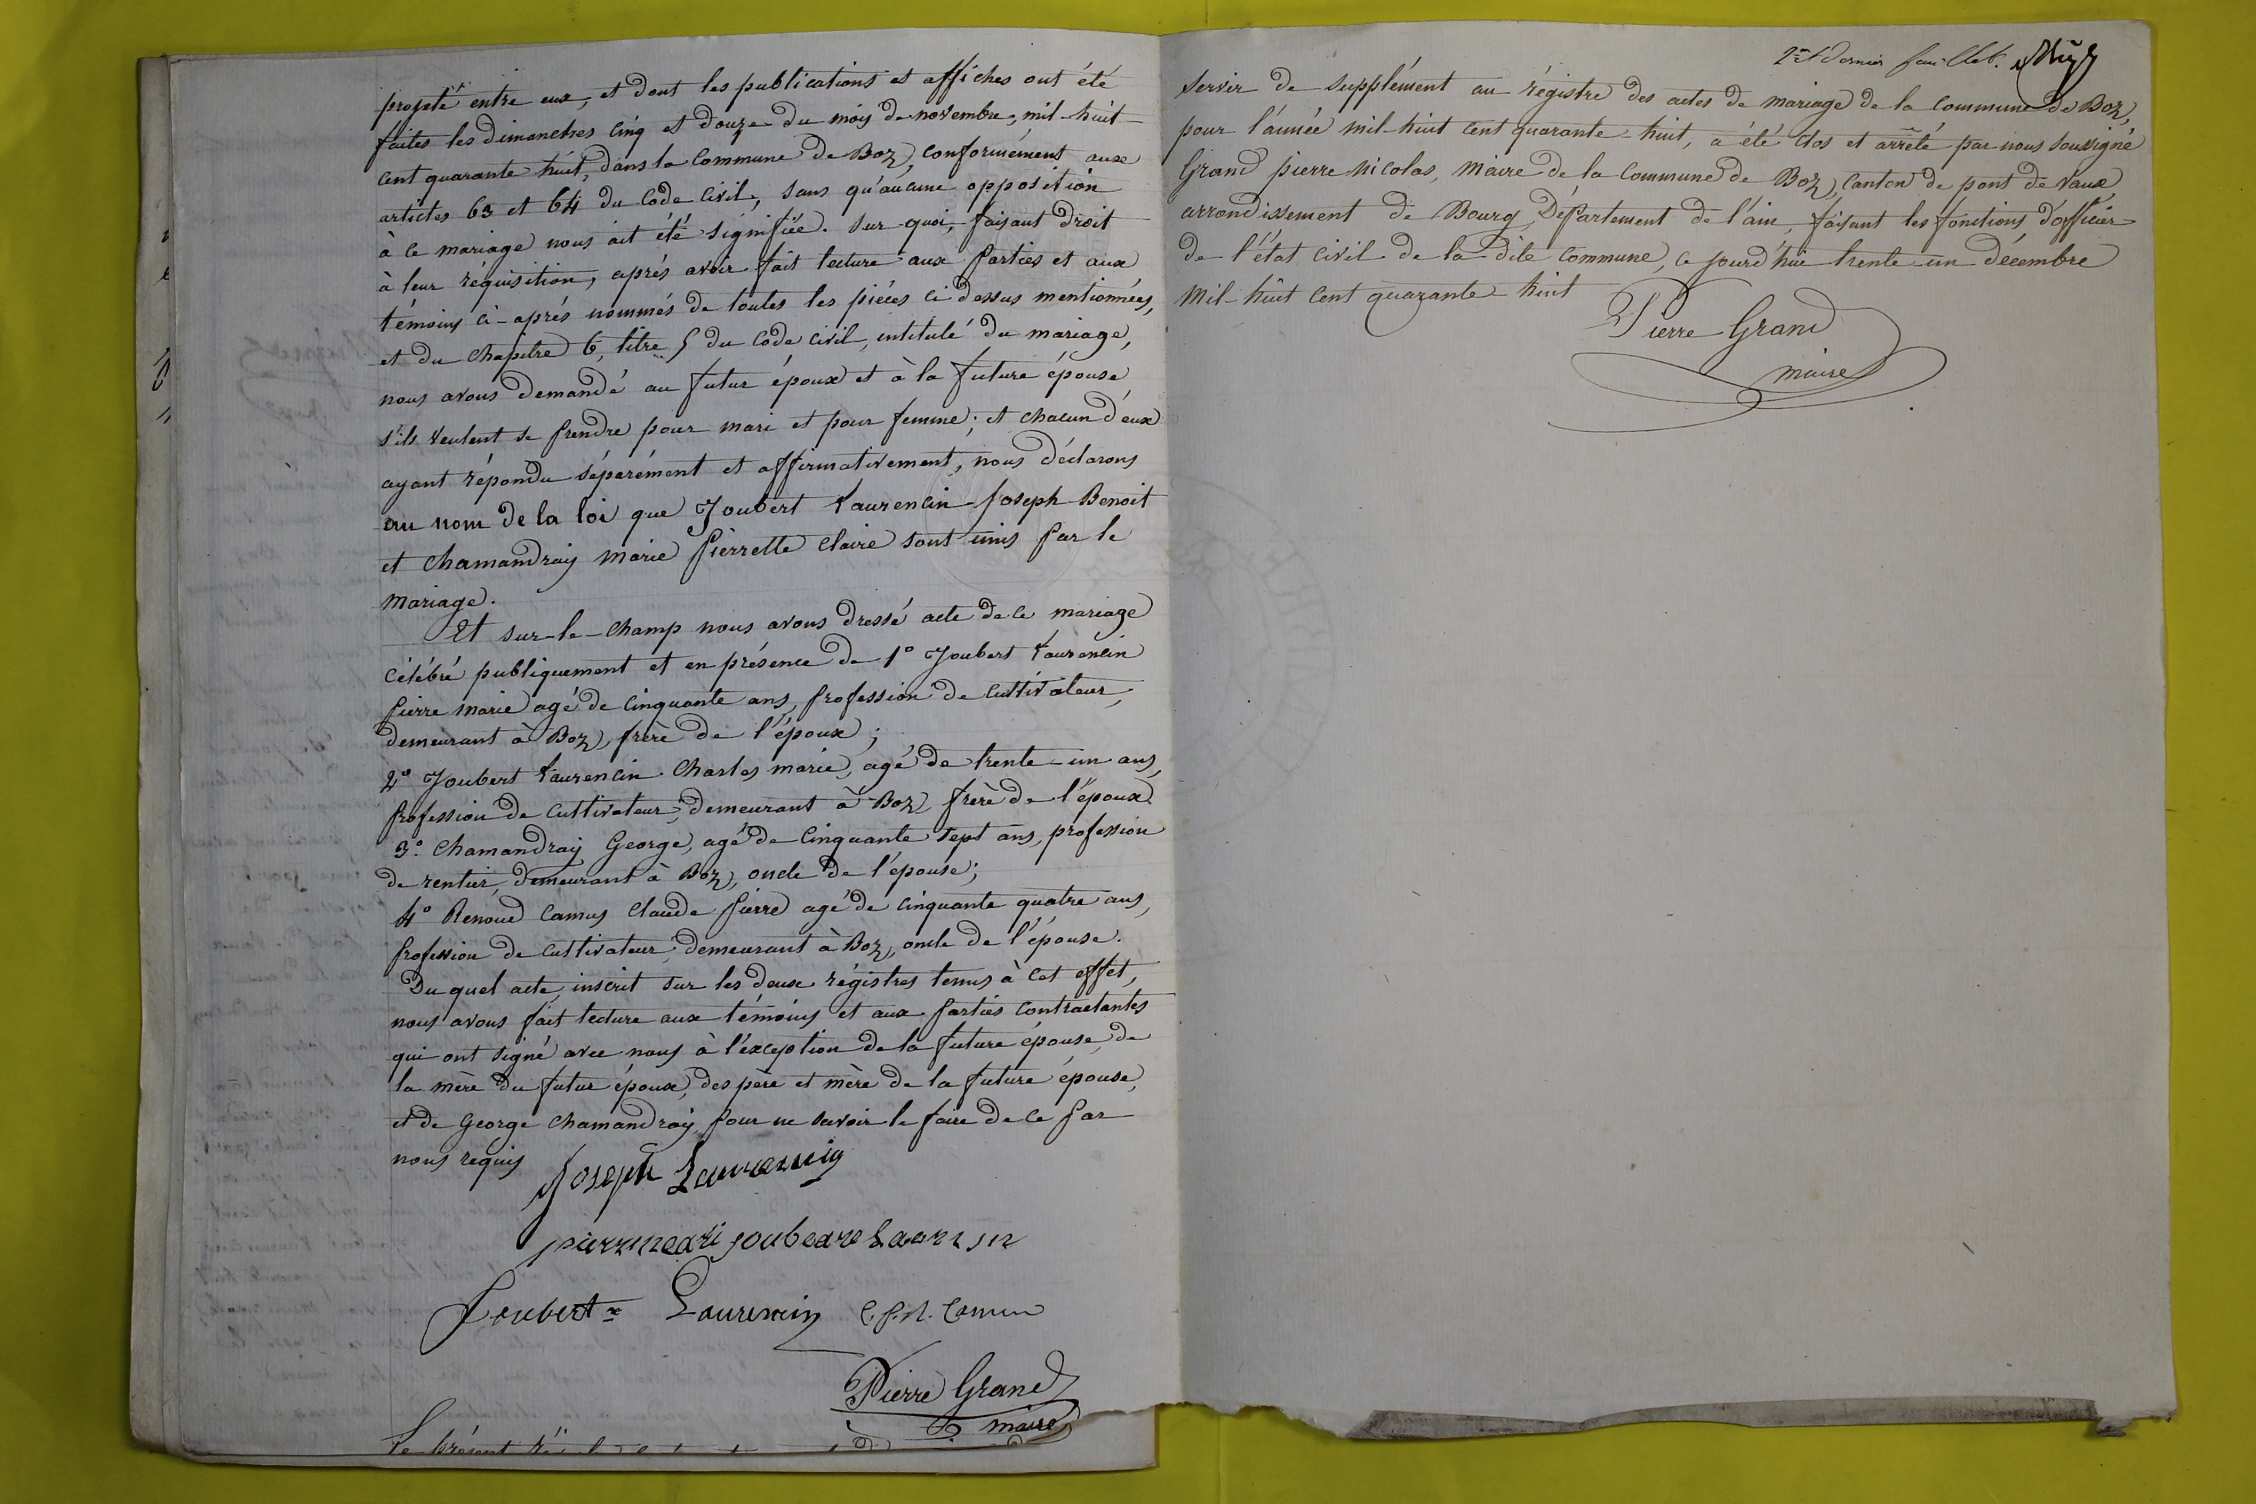 projeté entre eux, et dont les publications et affiches ont été
faites les dimanches cinq et douze du mois de novembre, mil-huit
cent quarante huit, dans la Commune de Boz, conformément aux
articles 63 et 64 du Code Civil, sans qu'aucune opposition
à ce mariage nous ait été signifiée. Sur-quoi, faisant droit
à leur requisition, aprés avoir fait lecture aux parties et aux
témoins ci-aprés nommés de toutes les piéces ci dessus mentionnées,
et du Chapitre 6, titre 5 du Code Civil, intitulé du mariage,
nous avons demandé au futur époux et à la future épouse
s'ils veulent se prendre pour mari et pour femme; et chacun d'eux
ayant répondu séparément et affirmativement, nous déclarons
au nom de la loi que Joubert Laurencin Joseph Benoit
et Chamandray Marie pierrette Claire sont unis par le
mariage.
Et sur-le-champ nous avons dressé acte de ce mariage
célébré publiquement et en présence de 1° Joubert Laurencin
pierre Marie agé de cinquante ans, profession de cultivateur,
demeurant à Boz, frère de l'époux;
2° Joubert Laurencin Charles marie, agé de trente-un ans,
profession de cultivateur, demeurant à Boz, frère de l'époux.
3°. Chamandray George, agé de cinquante sept ans, profession
de rentier, demeurant à Boz, oncle de l'épouse;
4° Renoud Camus Claude pierre agé de cinquante quatre ans,
profession de cultivateur, demeurant à Boz, oncle de l'épouse.
Du quel acte, inscrit sur les deux régistres tenus à cet effet,
nous avons fait lecture aux témoins et aux parties contractantes
qui ont signé avec nous à l'éxception de la future épouse, de
la mère du futur époux, des père et mère de la future épouse,
et de George Chamandray, pour ne savoir le faire de ce par
nous requis
Joseph Laurencin
pierre mari joubare
Joubert Laurencin C. P. R. Camus
Pierre Grand
maire
Le présent
2me et dernier feuillet.
servir de supplément au régistre des actes de mariage de la commune de Boz,
pour l'année mil-huit cent quarante-huit, a été clos et arrêté par nous soussigné
Grand pierre nicolas, Maire de la Commune de Boz, Canton de pont de Vaux,
arrondissement de Bourg, Département de l'ain, faisant les fonctions d'officier
de l'état civil de la dite Commune, ce jourd'hui trente-un décembre
Mil-huit cent quarante-huit
Pierre Grand
maire